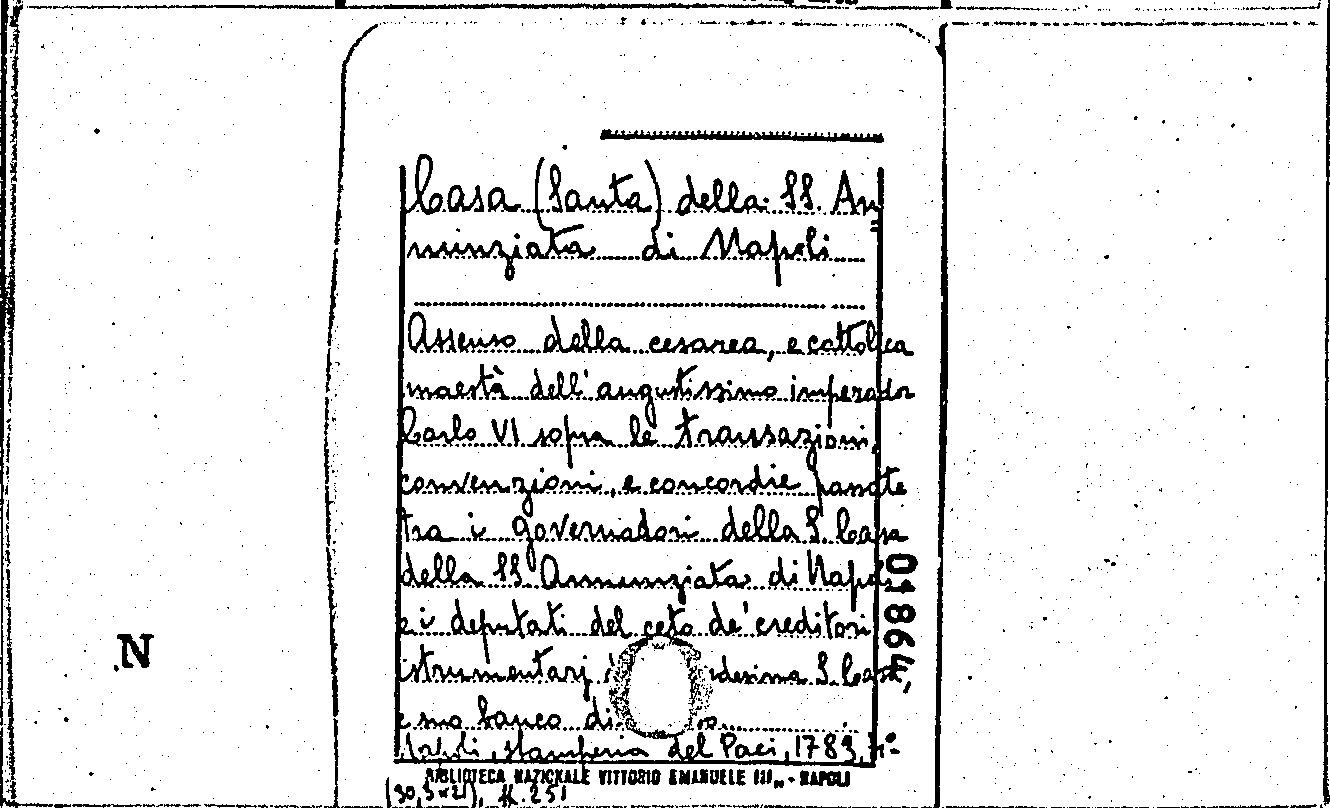 Casa (Santa) della SS. An=
nunziata di Napoli
Assenso della cesarea, e cattolica
maestà dell'augustissimo imperador
Carlo VI sopra le transazioni,
convenzioni, e concordie passate
tra i governadori della S. Casa
della SS. Annunziata di Napoli
e i deputati del ceto de' creditori
istrumentarj desima S. Casa,
e suo banco di
Napoli, stamperia del Paci, 1783, 4°
BIBLIOTECA NAZIONALE VITTORIO EMANUELE III„ - NAPOLI
(30,5x21), K. 251
01864,
N